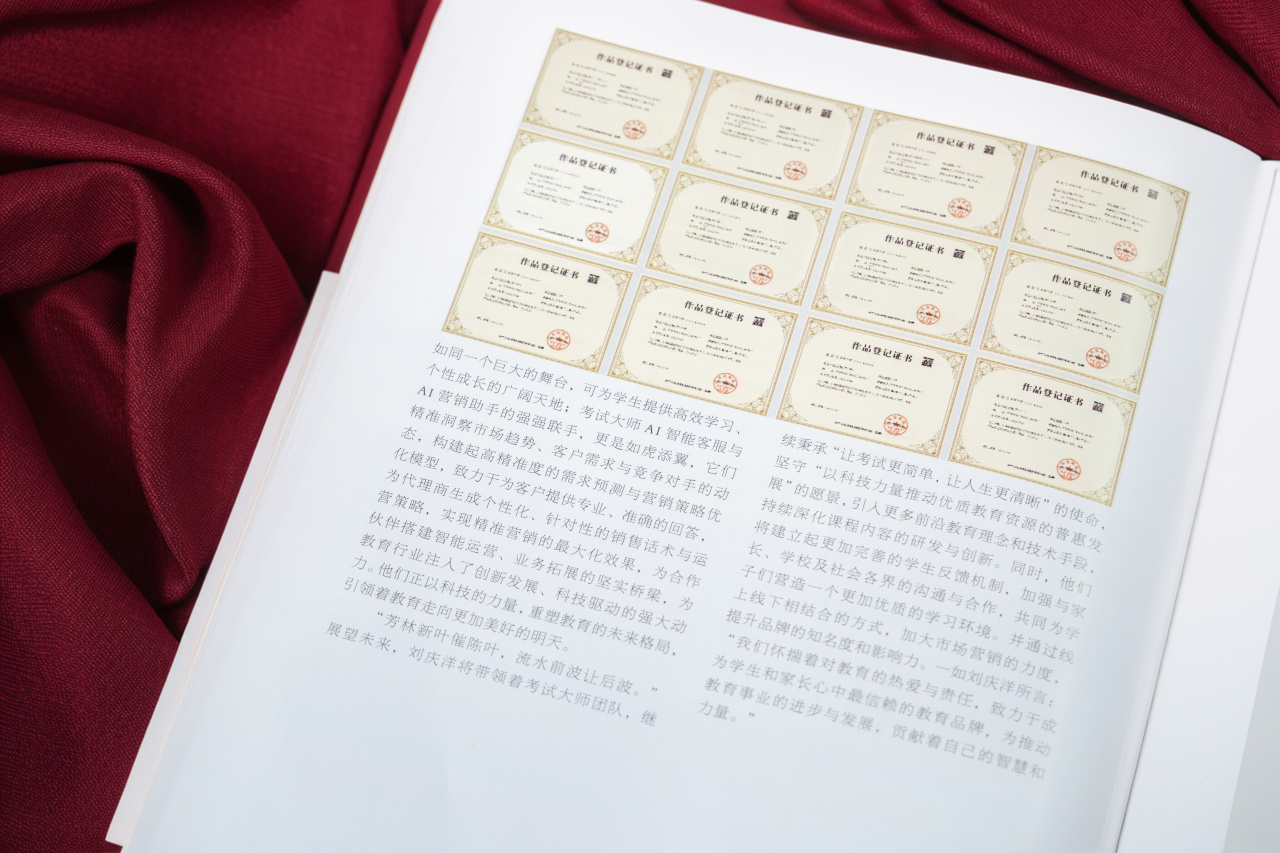 作品登记证书
作品登记证书
作品登记证书
作品登记证书
作品登记证书
作品登记证书
作品登记证书
作品登记证书
作品登记证书
作品登记证书
作品登记证书
作品登记证书
如同一个巨大的舞台，可为学生提供高效学习、
个性成长的广阔天地；考试大师 AI 智能客服与
AI 营销助手的强强联手，更是如虎添翼，它们
精准洞察市场趋势、客户需求与竞争对手的动
态，构建起高精准度的需求预测与营销策略优
化模型，致力于为客户提供专业、准确的回答，
为代理商生成个性化、针对性的销售话术与运
营策略，实现精准营销的最大化效果，为合作
伙伴搭建智能运营、业务拓展的坚实桥梁，为
教育行业注入了创新发展、科技驱动的强大动
力。他们正以科技的力量，重塑教育的未来格局，
引领着教育走向更加美好的明天。
“芳林新叶催陈叶，流水前波让后波。”
展望未来，刘庆洋将带领着考试大师团队，继
续秉承“让考试更简单，让人生更清晰”的使命，
坚守“以科技力量推动优质教育资源的普惠发
展”的愿景，引入更多前沿教育理念和技术手段，
持续深化课程内容的研发与创新。同时，他们
将建立起更加完善的学生反馈机制，加强与家
长、学校及社会各界的沟通与合作，共同为学
子们营造一个更加优质的学习环境。并通过线
上线下相结合的方式，加大市场营销的力度，
提升品牌的知名度和影响力。一如刘庆洋所言：
“我们怀揣着对教育的热爱与责任，致力于成
为学生和家长心中最信赖的教育品牌，为推动
教育事业的进步与发展，贡献着自己的智慧和
力量。”